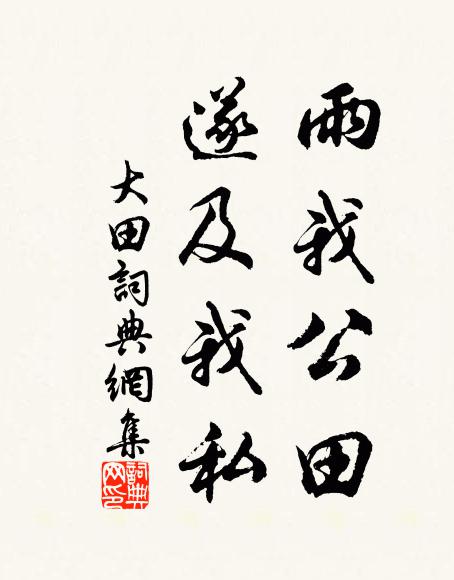 雨我公田
遂及我私
大田詞典網集
詞典网印